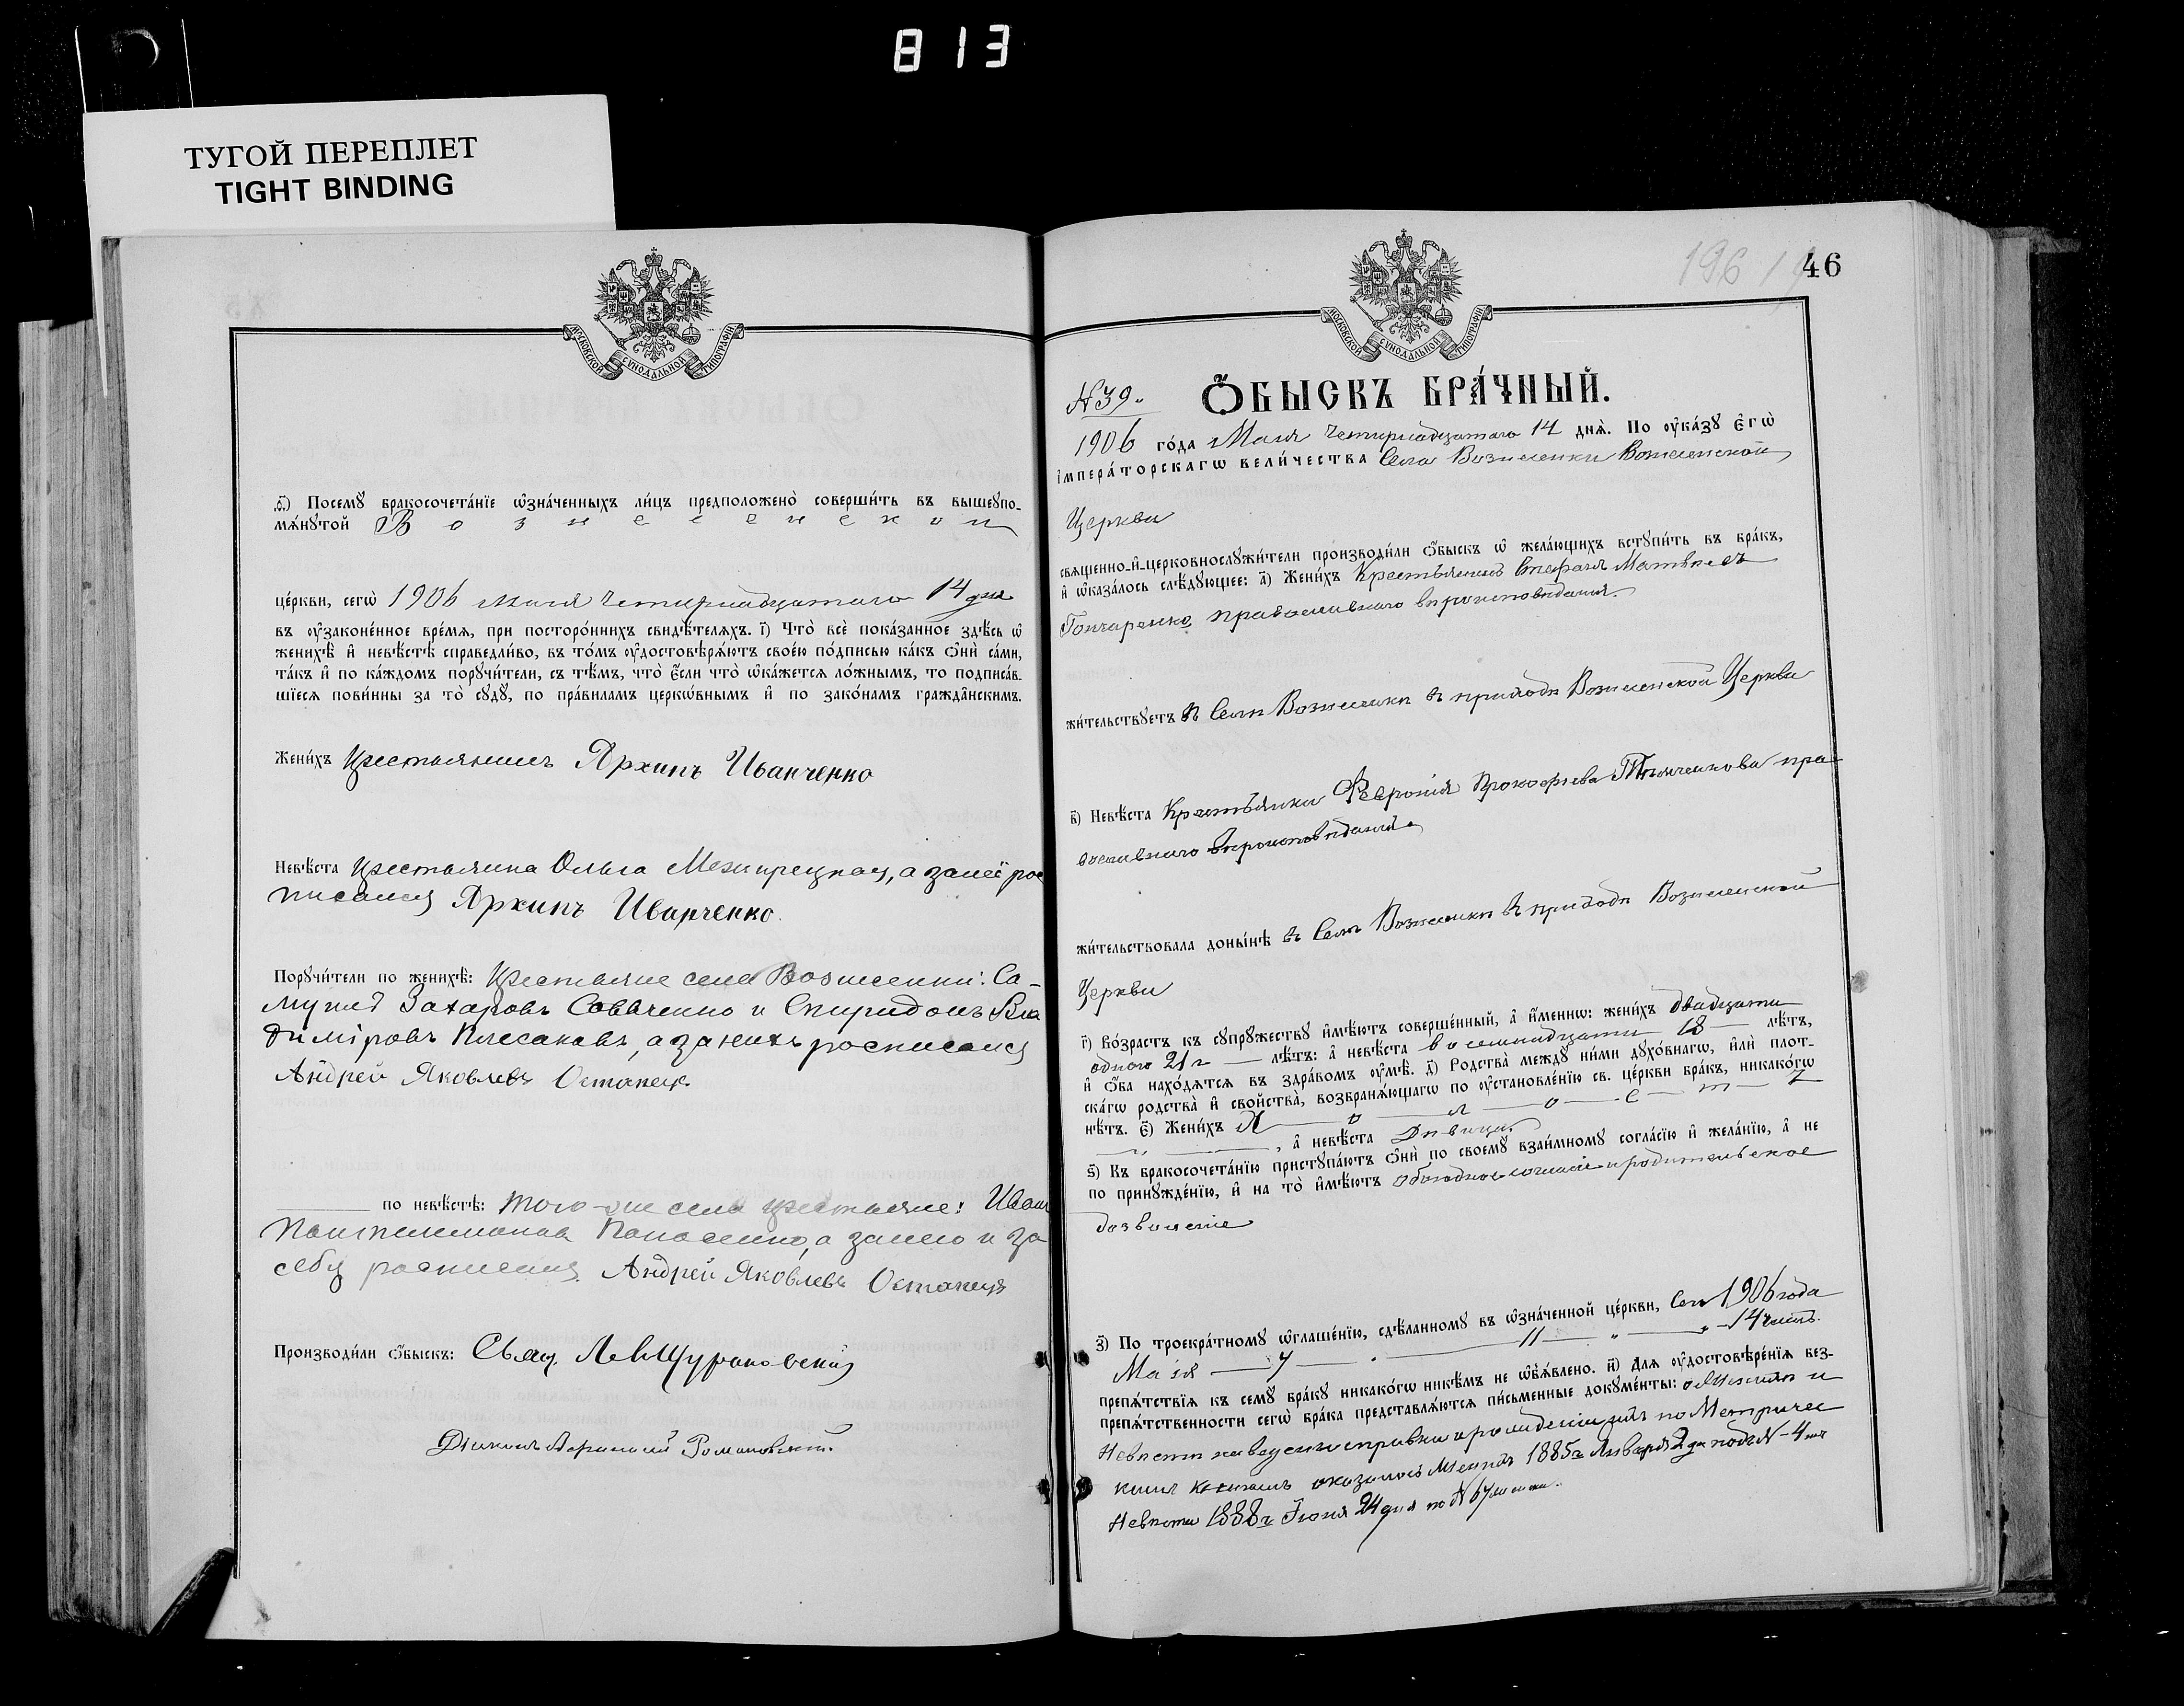 813
ТУГОЙ ПЕРЕПЛЕТ
TIGHT BINDING
МОСКОВСКОЙ СѴНОДАЛЬНОЙ ТИПОГРАФІИ
ѳ҃) Посемꙋ̀ бракосочета́нїе ѡ҆зна́ченныхъ ли́цъ предположено̀ соверши́ть въ вышеꙋпо-
мѧ́нꙋтой Вознесенской
це́ркви, сегѡ̀ 1906 мая четырнадцатаго 14 дня
въ ᲂу҆законе́нное вре́мѧ, при посторо́ннихъ свидѣ́телѧхъ. і҃) Что̀ всѐ пока́занное здѣ́сь ѡ҆
женихѣ̀ и҆ невѣ́стѣ справедли́во, въ то́мъ ᲂу҆достовѣрѧ́ютъ свое́ю по́дписью ка́къ ѻ҆нѝ са́ми,
та́къ и҆ по ка́ждомъ порꙋчи́тели, съ тѣ́мъ, что̀ є҆́сли что̀ ѡ҆ка́жетсѧ ло́жнымъ, то подписа́в-
шїесѧ пови́нны за то̀ сꙋдꙋ̀, по пра́виламъ церко́внымъ и҆ по зако́намъ гражда́нскимъ.
Жени́хъ крестьянинъ Архипъ Иванченко
Невѣ́ста крестьянка Ольга Межирецкая, а за неё рос
писался Архипъ Иванченко.
Порꙋчи́тели по женихѣ̀: Крестьяне села Вознесенки: Са-
муилъ Захаровъ Савченко и Спиридонъ Вла
димiровъ Плесаковъ, а за нихъ росписался
Андрей Яковлевъ Остапецъ
по невѣ́стѣ: того-же села крестьяне: Иванъ
Пантелимоновъ Панасенко, а за него и за
себя росписался Андрей Яковлевъ Остапецъ
Производи́ли ѻ҆́быскъ: Свящ. Левъ Щурановскій
Діаконъ Романовскій.
196
46
МОСКОВСКОЙ СѴНОДАЛЬНОЙ ТИПОГРАФІИ
N 39.
Ѻ҆́БЫСКЪ БРА́ЧНЫЙ.
1906 го́да Мая четырнадцатаго 14 днѧ̀. По ᲂу҆ка́зꙋ Є҆гѡ̀
І҆мпера́торскагѡ вели́чества Села Вознесенки Вознесенской
Церкви
свѧще́нно-и҆-церковнослꙋжи́тели производи́ли ѻ҆́быскъ ѡ҆ жела́ющихъ встꙋпи́ть въ бра́къ,
и҆ ѡ҆каза́лось слѣ́дꙋющее: а҃) Жени́хъ Крестьянинъ Стефанъ Матвѣевъ
Гончаренко православнаго вѣроисповѣданія.
жи́тельствꙋетъ въ Селѣ Вознесенкѣ въ приходѣ Вознесенской Церкви
в҃) Невѣ́ста Крестьянка Февронія Прокофьева пра-
вославнаго вѣроисповѣданія
жи́тельствовала доны́нѣ въ Селѣ Вознесенкѣ въ приходѣ Вознесенской
Церкви
г҃) Во́зрастъ къ сꙋпрꙋ́жествꙋ и҆мѣ́ютъ соверше́нный, а҆ и҆́менно: жени́хъ двадцати
одного 21 г лѣ́тъ: а҆ невѣ́ста восемнадцати 18 лѣ́тъ,
и҆ ѻ҆́ба нахо́дѧтсѧ въ здра́вомъ ᲂу҆мѣ̀. д҃) Родства̀ междꙋ̀ ни́ми дꙋхо́внагѡ, и҆лѝ пло́т-
скагѡ родства̀ и҆ сво́йства, возбранѧ́ющагѡ по ᲂу҆становле́нїю св. це́ркви бра́къ, никако́гѡ
нѣ́тъ. є҃) Жени́хъ Холостъ
, а҆ невѣ́ста Дѣвица
ѕ҃) Къ бракосочета́нїю пристꙋпа́ютъ ѻ҆нѝ по своемꙋ̀ взаи́мномꙋ согла́сїю и҆ жела́нїю, а҆ не
по принꙋжде́нїю, и҆ на то̀ и҆мѣ́ютъ обоюдное согласіе и родительское
дозволеніе
з҃) По троекра́тномꙋ ѡ҆глаше́нїю, сдѣ́ланномꙋ въ ѡ҆зна́ченной це́ркви, Сего 1906 года
Маія 7 11 14 числъ.
препѧ́тствїѧ къ семꙋ̀ бра́кꙋ никако́гѡ никѣ́мъ не ѡ҆б̾ѧ́влено. и҃) Длѧ ᲂу҆достовѣре́нїѧ без-
препѧ́тственности сегѡ̀ бра́ка представлѧ́ютсѧ пи́сьменные докꙋме́нты: о Женихѣ и
Невѣстѣ наведены справки о рожденіи ихъ по Метричес
кимъ книгамъ оказалось Женихъ 1885 г. Января 2 дн подъ N-4 мъ
Невѣста 1888 г. Іюня 24 дня по N 67